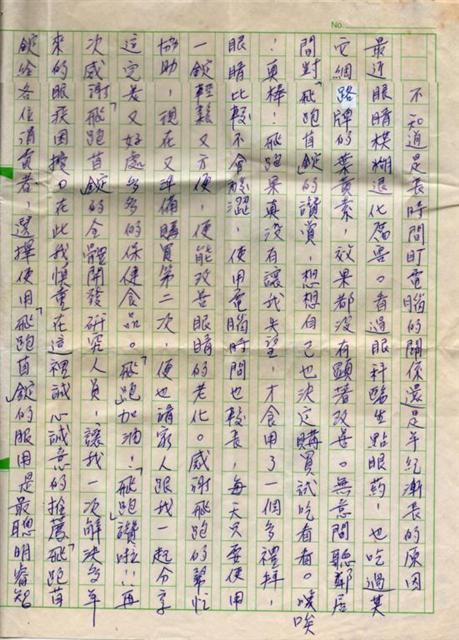 No.
不知道是長時間盯電腦的關係還是年紀漸長的原因
最近眼睛模糊退化厲害。看過眼科醫生點眼药,也吃過其
它網路牌的葉黃素,效果都没有顕著改善。無意間聽鄰居
間對「飛跑苜錠」的讚賞,想想自己也決定購買試吃看看。噗唉
!真棒!飛跑果真没有讓我失望,才食用了一個多禮拜,
眼睛比較不會酸澀,使用電腦時間也較長,每天只要使用
一錠輕鬆又方便,便能改善眼睛的老化。感謝飛跑的幫忙
協助,現在又準備購買第二次,便也請家人跟我一起分享
這完美又好處多多的保健食品。「飛跑」加油!「飛跑」讚啦!!再
次感謝「飛跑苜錠」的全體開發研究人員,讓我一次解決多年
來的眼疾困擾。在此我慎重在這裡誠心誠意的推薦「飛跑苜
錠」給各位消費者,選擇使用「飛跑苜錠」的服用是最聰明睿智